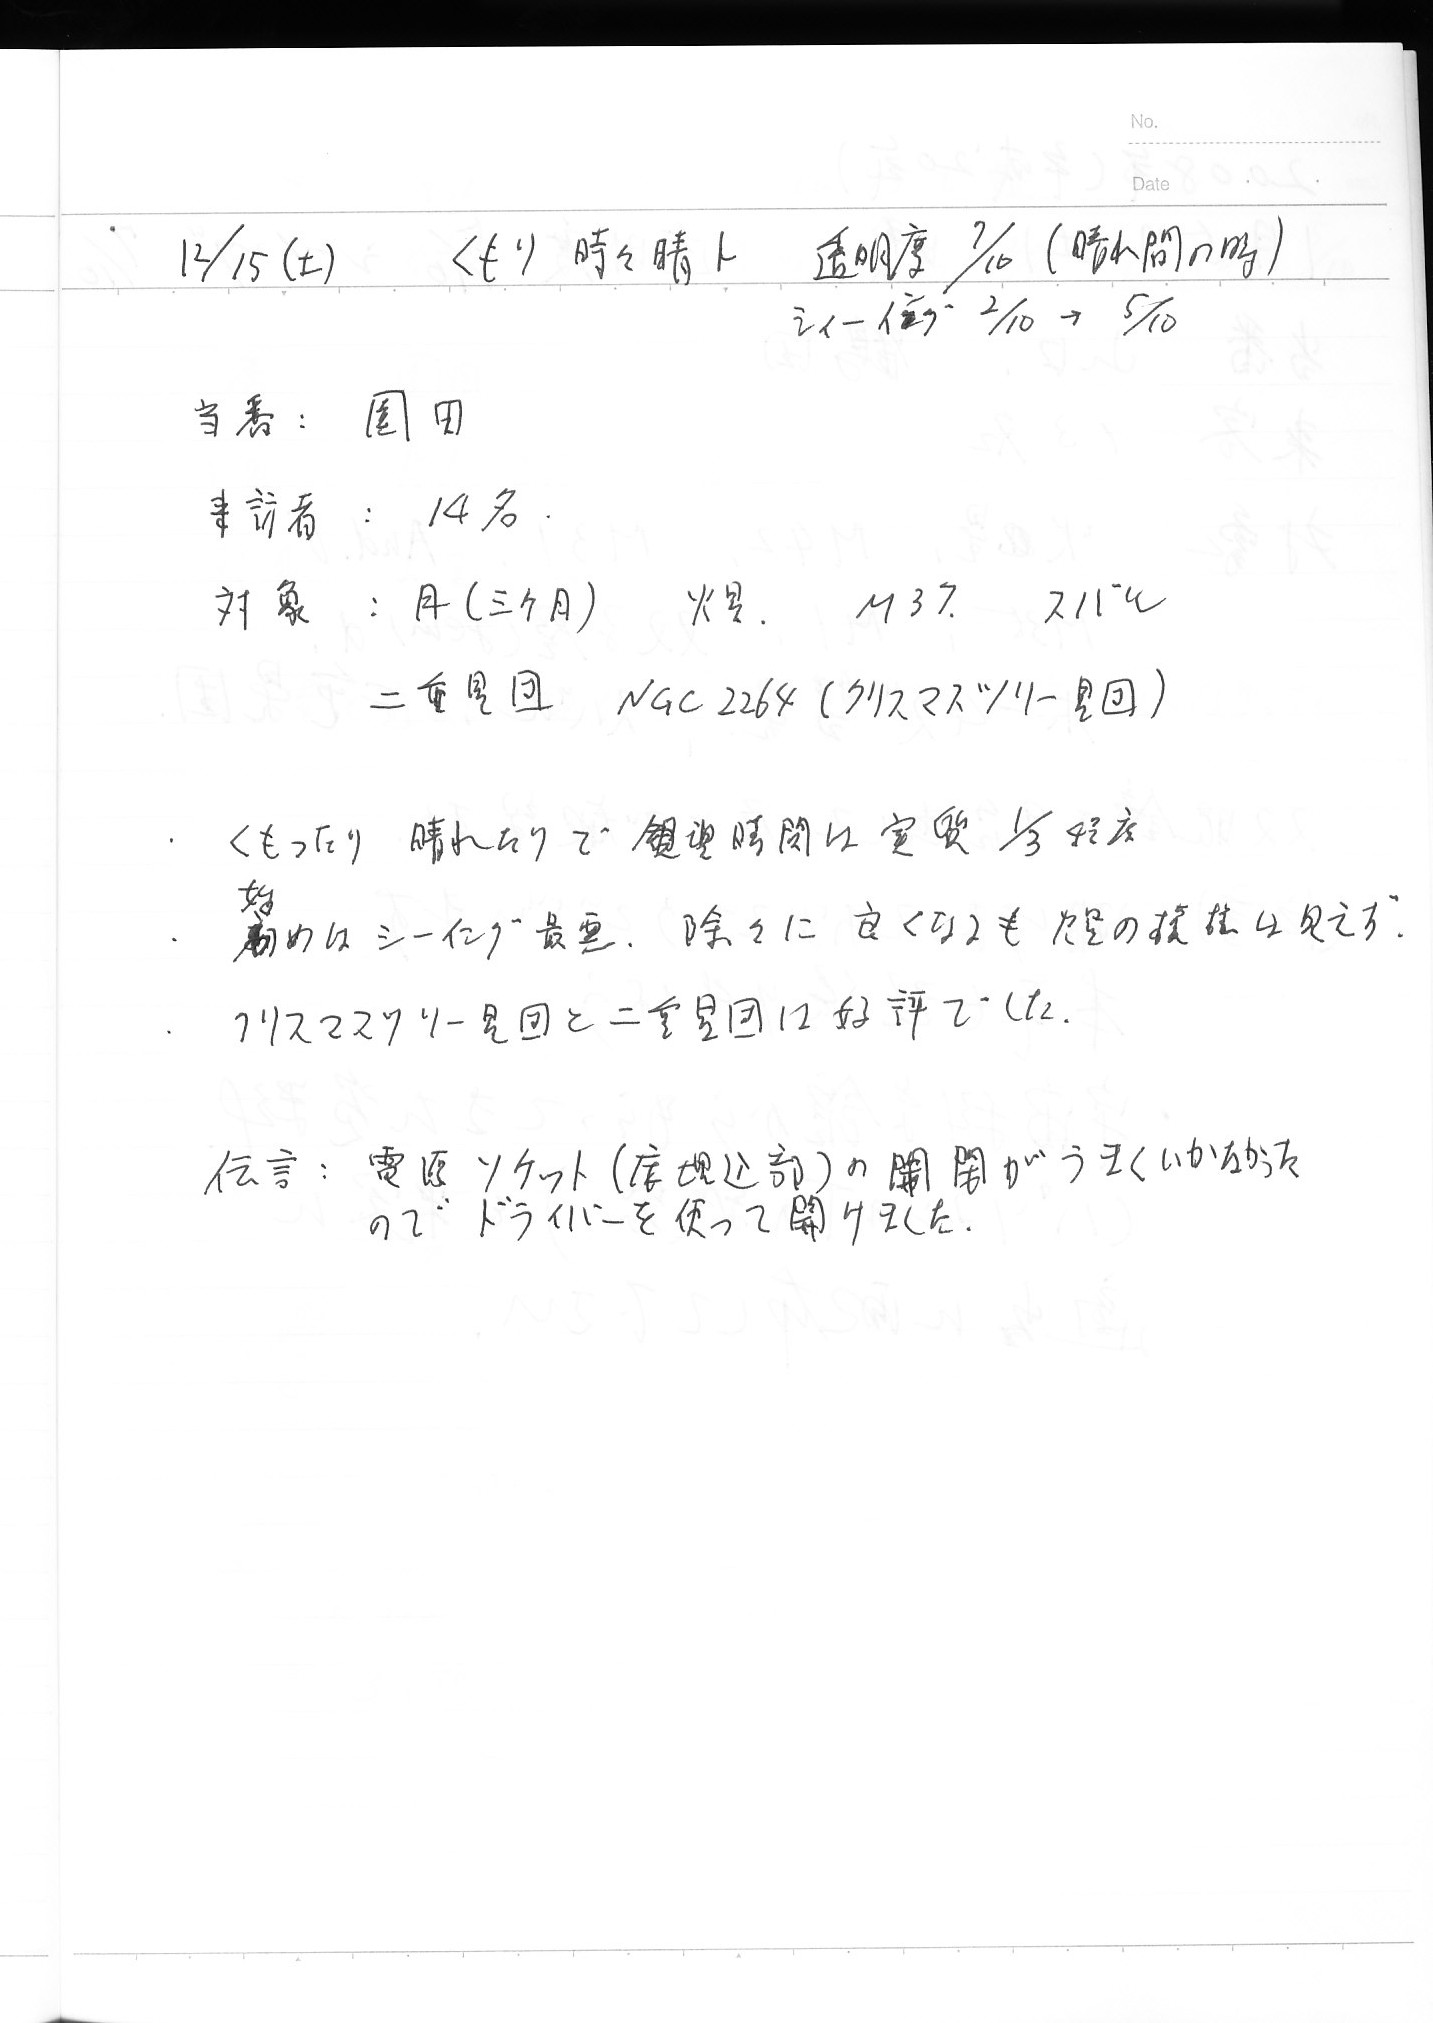 No.
Date
12/15(土) くもり 時々晴れ 透明度 7/10 (晴れ間の時)
シィーイング 2/10 → 5/10
当番: 園田
来訪者 : 14名.
対象 : 月(三ケ月) 火星. M37. スバル
二重星団 NGC2264(クリスマスツリー星団)
・ くもったり 晴れたりで 観望時間は 実質 1/3 程度
・ 始めは シーイング 最悪. 除々に 良くなるも 火星の模様は見えず.
・ クリスマスツリー星団と二重星団は好評でした.
伝言: 電源ソケット(床埋込部)の開閉がうまくいかなかった
ので ドライバーを使って開けました.